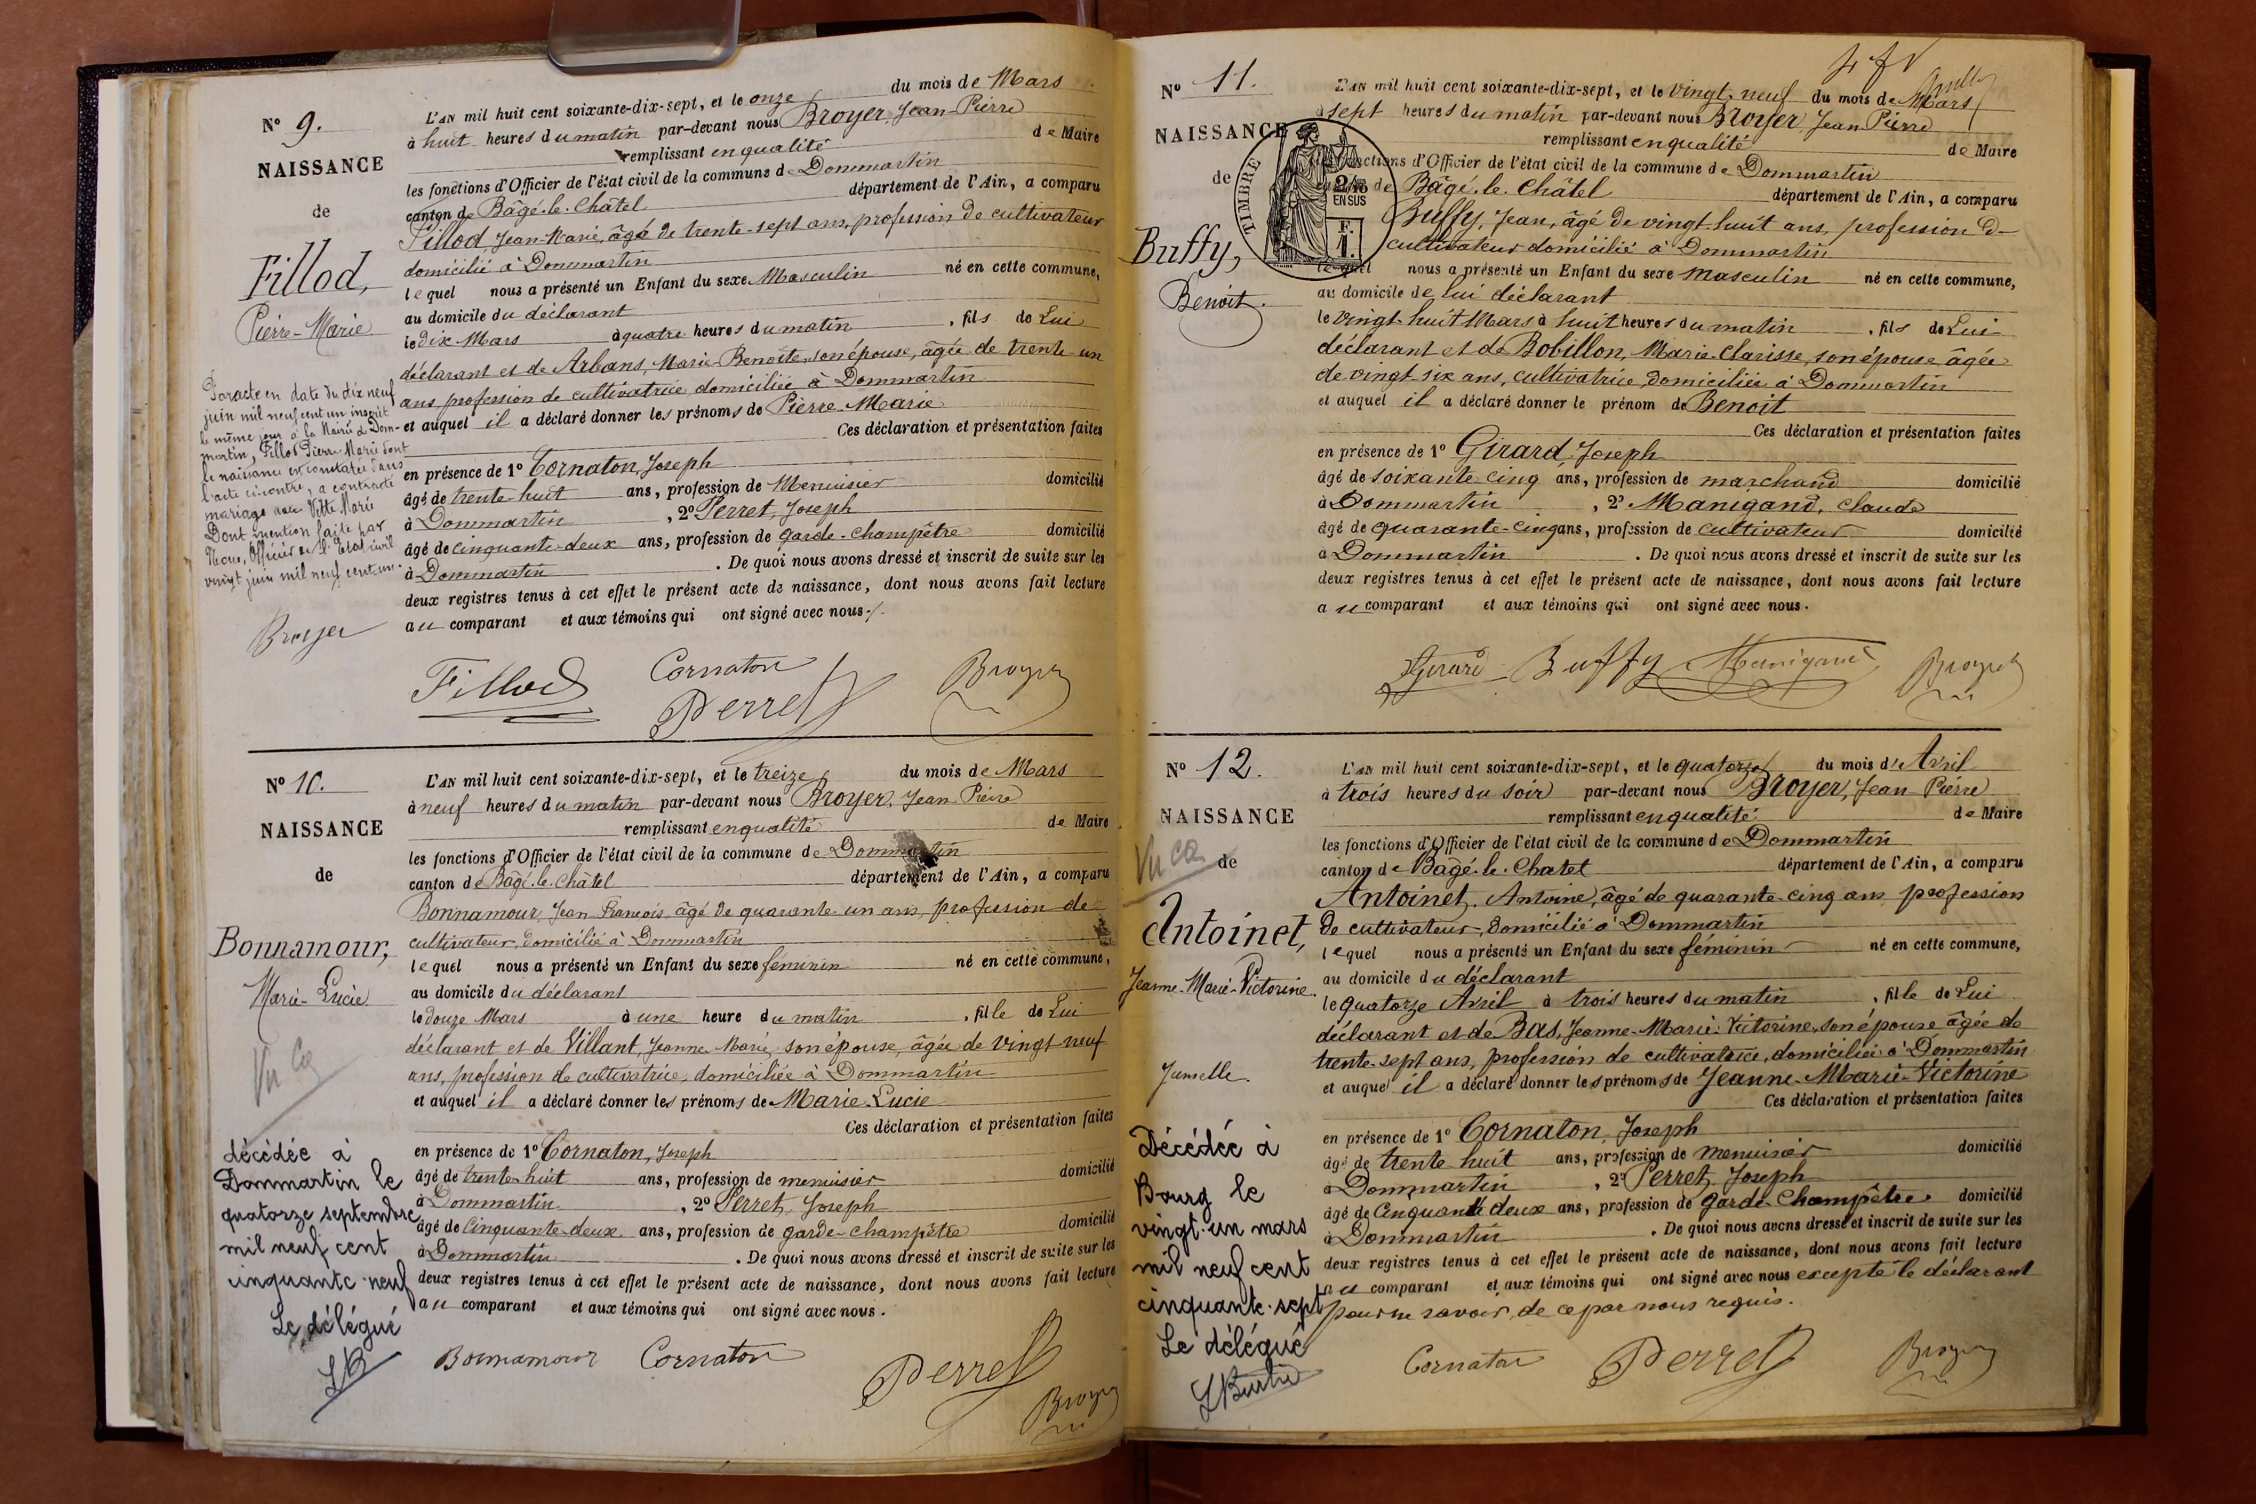 N° 9.
NAISSANCE
de
Fillod,
Pierre-Marie
Par acte en date du dix neuf
juin mil neuf cent un inscrit
le même jour à la Mairie de Dom-
martin, Fillod Pierre Marie dont
la naissance est constatée dans
l'acte ci-contre, a contracté
mariage avec Vitte Marie
Dont mention faite par
Nous, Officier de l'Etat civil
vingt juin mil neuf cent un.
Broyer
L'AN mil huit cent soixante-dix-sept, et le onze du mois de Mars
à huit heures du matin par-devant nous Broyer, Jean-Pierre
remplissant en qualité de Maire
les fonctions d'Officier de l'état civil de la commune de Dommartin
canton de Bâgé-le-Châtel département de l'Ain, a comparu
Fillod, Jean-Marie, âgé de trente-sept ans, profession de cultivateur
domicilié à Dommartin
lequel nous a présenté un Enfant du sexe Masculin né en cette commune,
au domicile du déclarant
le dix Mars à quatre heures du matin, fils de Lui
déclarant et de Arbans, Marie-Benoîte, son épouse, âgée de trente un
ans profession de cultivatrice, domiciliée à Dommartin
et auquel il a déclaré donner les prénoms de Pierre-Marie
Ces déclaration et présentation faites
en présence de 1° Cornaton, Joseph
âgé de trente-huit ans, profession de Menuisier domicilié
à Dommartin, 2° Perret, Joseph
âgé de cinquante-deux ans, profession de garde-champêtre domicilié
à Dommartin. De quoi nous avons dressé et inscrit de suite sur les
deux registres tenus à cet effet le présent acte de naissance, dont nous avons fait lecture
au comparant et aux témoins qui ont signé avec nous.
Fillod Cornaton Broyer
Perret
N° 10.
NAISSANCE
de
Bonnamour,
Marie-Lucie
Vu
décédée à
Dommartin le
quatorze septembre
mil neuf cent
cinquante-neuf
Le délégué
L'AN mil huit cent soixante-dix-sept, et le treize du mois de Mars
à neuf heures du matin par-devant nous Broyer, Jean Pierre
remplissant en qualité de Maire
les fonctions d'Officier de l'état civil de la commune de Dommartin
canton de Bâgé-le-Châtel département de l'Ain, a comparu
Bonnamour, Jean François, âgé de quarante-un ans, profession de
cultivateur, domicilié à Dommartin
lequel nous a présenté un Enfant du sexe féminin né en cette commune,
au domicile du déclarant
le douze Mars à une heure du matin, fille de Lui
déclarant et de Villant, Jeanne Marie, son épouse, âgée de vingt neuf
ans, profession de cultivatrice, domiciliée à Dommartin
et auquel il a déclaré donner les prénoms de Marie-Lucie
Ces déclaration et présentation faites
en présence de 1° Cornaton, Joseph
âgé de trente-huit ans, profession de menuisier domicilié
à Dommartin, 2° Perret, Joseph
âgé de Cinquante-deux ans, profession de garde-champêtre domicilié
à Dommartin. De quoi nous avons dressé et inscrit de suite sur les
deux registres tenus à cet effet le présent acte de naissance, dont nous avons fait lecture
au comparant et aux témoins qui ont signé avec nous.
Bonnamour Cornaton Perret
Broyer
N° 11.
NAISSANCE
de
Buffy,
Benoît.
TIMBRE
2/10
EN SUS
F.
1.
L'AN mil huit cent soixante-dix-sept, et le vingt-neuf du mois de Mars
à sept heures du matin par-devant nous Broyer, Jean Pierre
remplissant en qualité de Maire
les fonctions d'Officier de l'état civil de la commune de Dommartin
canton de Bâgé-le-Châtel département de l'Ain, a comparu
Buffy, Jean, âgé de vingt-huit ans, profession de
cultivateur domicilié à Dommartin
lequel nous a présenté un Enfant du sexe masculin né en cette commune,
au domicile de lui déclarant
le vingt-huit Mars à huit heures du matin, fils de Lui
déclarant et de Bobillon, Marie-Clarisse, son épouse âgée
de vingt six ans, cultivatrice, domiciliée à Dommartin
et auquel il a déclaré donner le prénom de Benoît
Ces déclaration et présentation faites
en présence de 1° Girard Joseph
âgé de soixante cinq ans, profession de marchand domicilié
à Dommartin, 2° Manigand, Claude
âgé de quarante-cinq ans, profession de cultivateur domicilié
à Dommartin. De quoi nous avons dressé et inscrit de suite sur les
deux registres tenus à cet effet le présent acte de naissance, dont nous avons fait lecture
au comparant et aux témoins qui ont signé avec nous.
Girard Buffy Manigand Broyer
N° 12.
NAISSANCE
de
Vu
Antoinet,
Jeanne-Marie-Victorine.
Jumelle.
Décédée à
Bourg le
vingt-un mars
mil neuf cent
cinquante-sept
Le délégué
L'AN mil huit cent soixante-dix-sept, et le quatorze du mois d'Avril
à trois heures du soir par-devant nous Broyer, Jean Pierre
remplissant en qualité de Maire
les fonctions d'Officier de l'état civil de la commune de Dommartin
canton de Bâgé-le-Chatel département de l'Ain, a comparu
Antoinet, Antoine, âgé de quarante-cinq ans profession
de cultivateur, domicilié à Dommartin
lequel nous a présenté un Enfant du sexe féminin né en cette commune,
au domicile du déclarant
le quatorze Avril à trois heures du matin, fille de Lui
déclarant et de Bas, Jeanne-Marie-Victorine, son épouse âgée de
trente-sept ans, profession de cultivatrice, domiciliée à Dommartin
et auquel il a déclaré donner les prénoms de Jeanne-Marie-Victorine
Ces déclaration et présentation faites
en présence de 1° Cornaton, Joseph
âgé de trente huit ans, profession de menuisier domicilié
à Dommartin, 2° Perret, Joseph
âgé de Cinquante deux ans, profession de garde-Champêtre domicilié
à Dommartin. De quoi nous avons dressé et inscrit de suite sur les
deux registres tenus à cet effet le présent acte de naissance, dont nous avons fait lecture
au comparant et aux témoins qui ont signé avec nous excepté le déclarant
pour ne savoir, de ce par nous requis.
Cornaton Perret Broyer